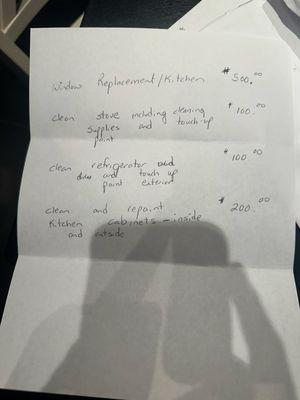 Window Replacement/Kitchen $500.00
clean stove including cleaning $100.00
supplies and touch-up
paint
clean refrigerator and $100.00
and touch up
paint exterior
clean and repaint $200.00
Kitchen cabinets - inside
and outside